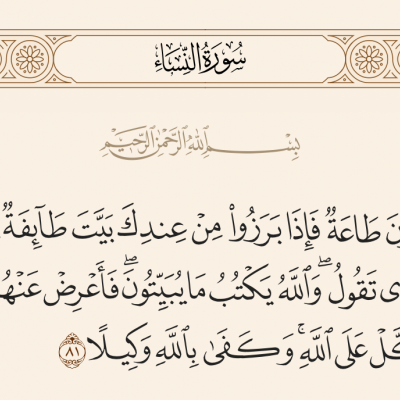 سُورَةُ النِّسَاءِ
بِسْمِ اللَّهِ الرَّحْمَٰنِ الرَّحِيمِ
طَاعَةٌ فَإِذَا بَرَزُواْ مِنْ عِندِكَ بَيَّتَ طَآئِفَةٌ
تَقُولُ ۖ وَٱللَّهُ يَكْتُبُ مَا يُبَيِّتُونَ ۖ فَأَعْرِضْ عَنْهُ
عَلَى ٱللَّهِ ۚ وَكَفَىٰ بِٱللَّهِ وَكِيلًا ٨١